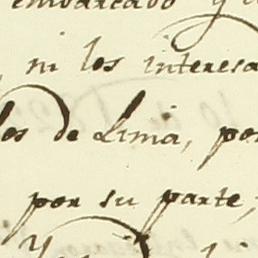 embarcado y
ni los interesa
los de Lima, por
por su parte;
Y